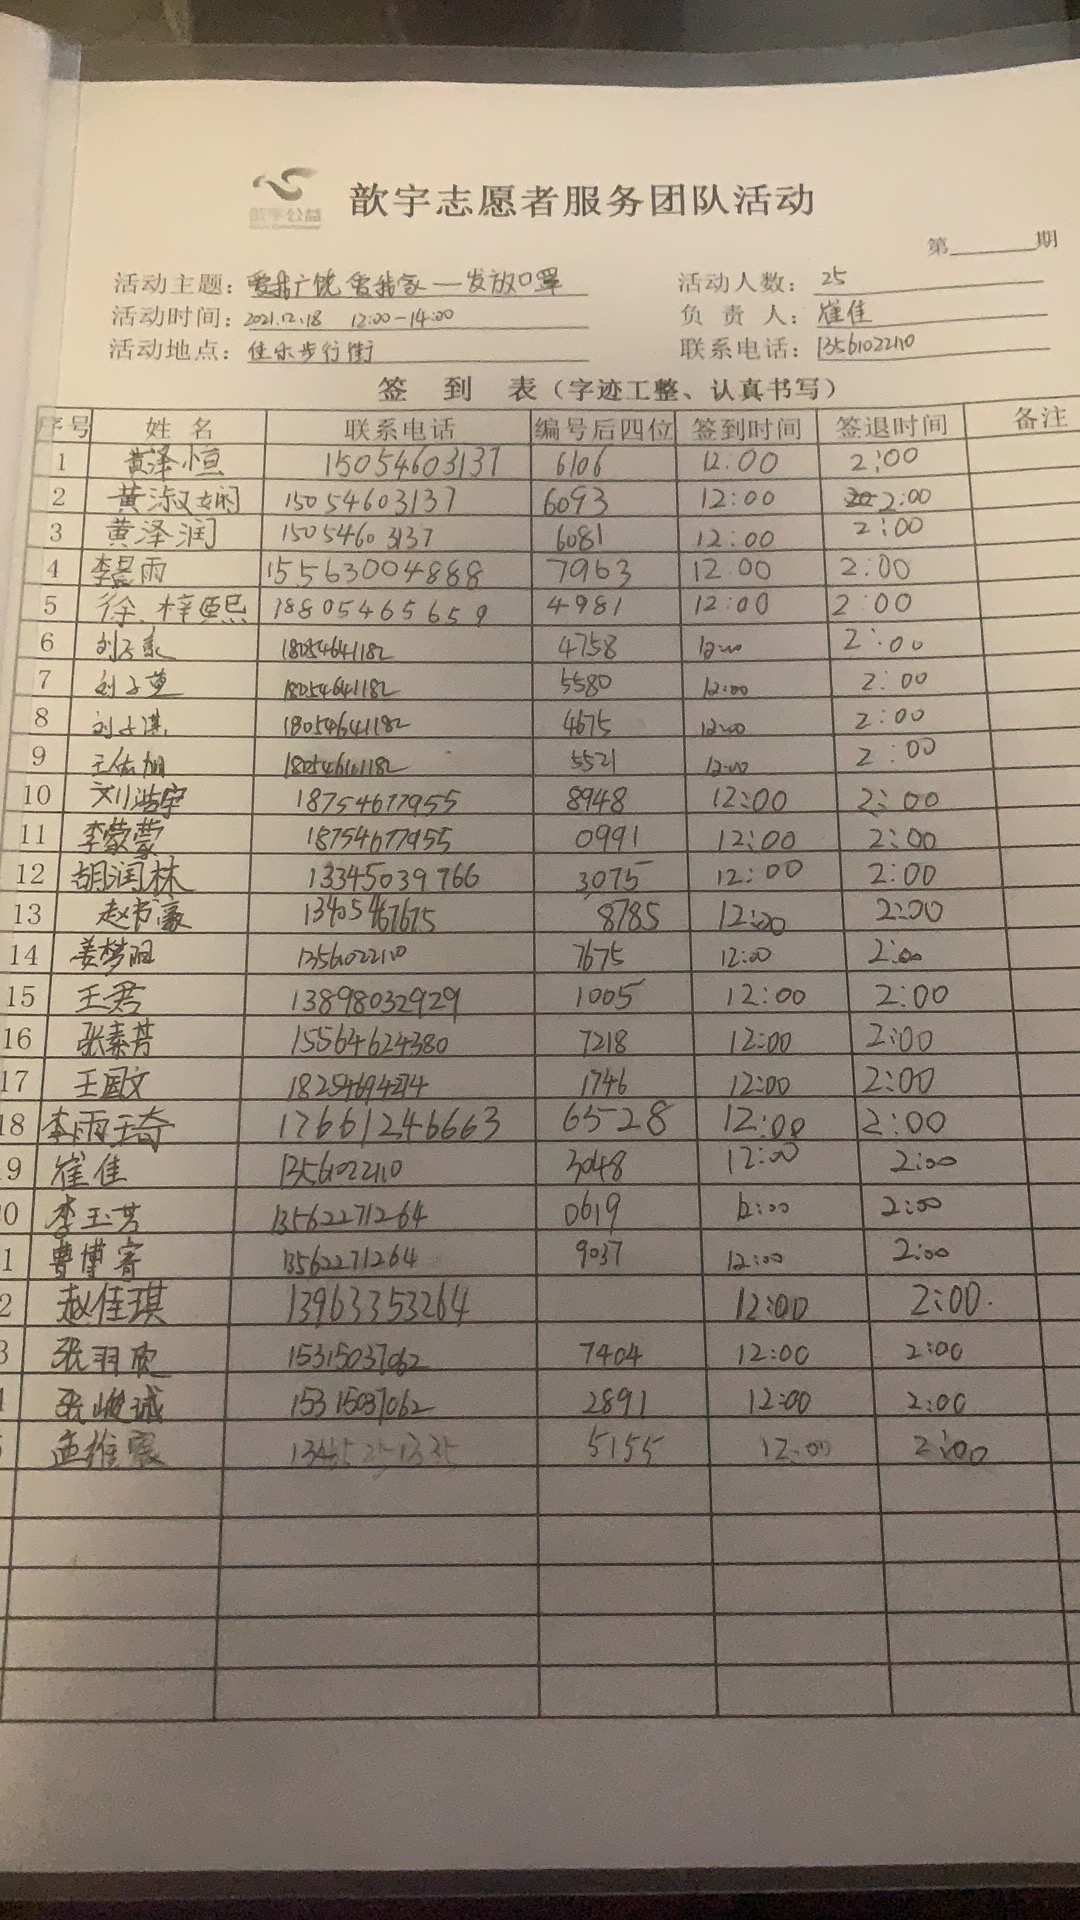 歆宇公益
歆宇志愿者服务团队活动
第 期
活动主题：爱我广饶 爱我家—发放口罩 活动人数：25
活动时间：2021.12.18 12:00-14:00 负责人：崔佳
活动地点：佳乐步行街 联系电话：13561022110
签 到 表（字迹工整、认真书写）
序号 姓名 联系电话 编号后四位 签到时间 签退时间 备注
1 黄泽恒 15054603137 6106 12:00 2:00
2 黄淑娴 15054603137 6093 12:00 2:00
3 黄泽润 15054603137 6081 12:00 2:00
4 李晨雨 15563004888 7963 12:00 2:00
5 徐梓熙 18805465659 4981 12:00 2:00
6 刘子 18054641182 4758 12:00 2:00
7 刘子萱 18054641182 5580 12:00 2:00
8 刘子淇 18054641182 4675 12:00 2:00
9 王依旭 5521 12:00 2:00
10 刘浩宇 18754677955 8948 12:00 2:00
11 李蒙蒙 18754677955 0991 12:00 2:00
12 胡润林 13345039766 3075 12:00 2:00
13 赵书豪 13405467675 8785 12:00 2:00
14 姜梦 13561022110 7675 12:00 2:00
15 王君 13898032929 1005 12:00 2:00
16 张素芳 15564624380 7218 12:00 2:00
17 王国文 18254694274 1746 12:00 2:00
18 李雨琦 17661246663 6528 12:00 2:00
9 崔佳 13561022110 3048 12:00 2:00
0 李玉芳 13562271264 0619 12:00 2:00
1 曹博睿 13562271264 9037 12:00 2:00
2 赵佳琪 13963353264 12:00 2:00
3 张羽欣 15315037062 7404 12:00 2:00
张峻诚 15315037062 2891 12:00 2:00
孟维宸 5155 12:00 2:00